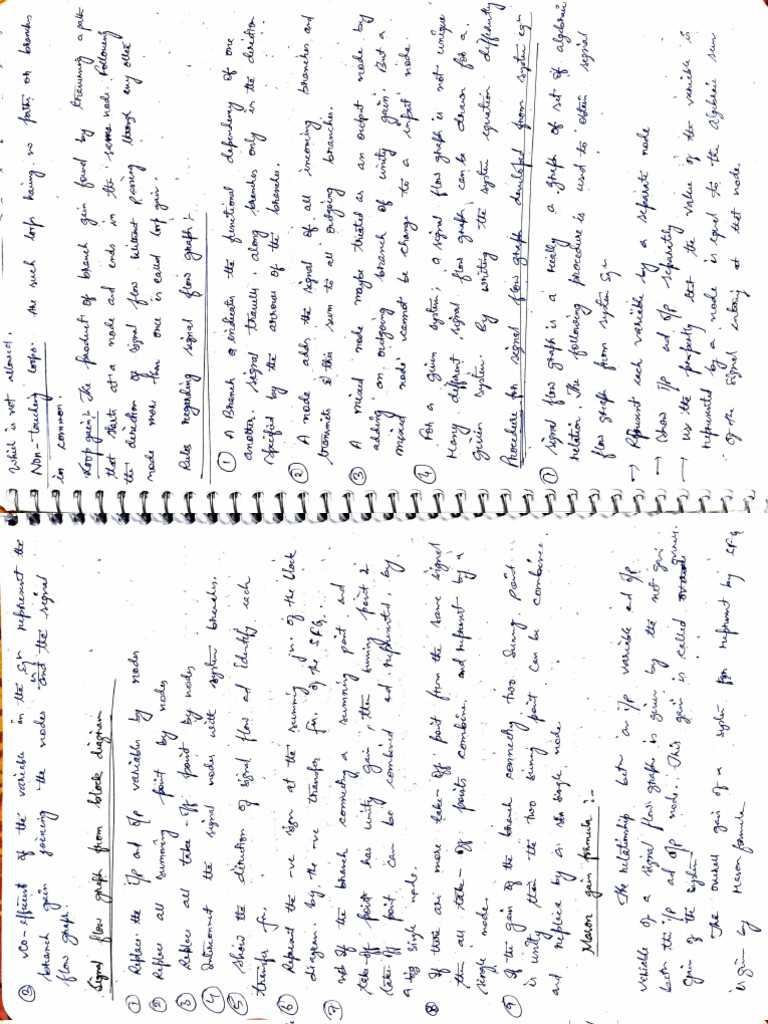 Which is not allowed.
Non-touching loops: the such loop having no paths or branches
in common.
Loop gain:- The product of branch gain found by traversing a path
that start at a node and ends in the same node. Following
the direction of signal flow without passing through any other
node more than once is called loop gain.
Rules regarding signal flow graph:-
① A Branch indicates the functional dependency of one
another. signal travells along branches only in the direction
specified by the arrows of the branches.
② A node adds the signal of all incoming branches and
transmits this sum to all outgoing branches.
③ A mixed node maybe treated as an output node by
adding an outgoing branch of unity gain. But a
mixed node cannot be change to a input node.
④ For a given system, a signal flow graph is not unique
Many different signal flow graph can be drawn for a
given system by writing the system equation differently
Procedure for signal flow graph developed from system eqn
① signal flow graph is a really a graph of set of algebraic
relation. The following procedure is used to obtain signal
flow graph from system eqn
→ Represent each variable by a separate node
→ show i/p and o/p separately
→ us the property that the value of the variable is
represented by a node is equal to the algebraic sum
of the signal entering at that node.
② co-efficient of the variable in the eqn is represent the
branch gain joining the nodes and the signal
flow graph
Signal flow graph from block diagram
① Replace the i/p and o/p variables by nodes
② Replace all summing point by nodes
③ Replace all take-off point by nodes
④ Interconnect the signal nodes with system branches.
⑤ Show the direction of signal flow and identify each
transfer fn.
⑥ Represent the -ve sign at the summing jn. of the block
diagram by the -ve transfer fn. of the SFG.
⑦ of the branch connecting a summing point and
take-off point has unity gain, then summing point &
take-off point can be combined and represented by
a single node.
⑧ If there are more take-off point from the same signal
then all take-off points combine and represent by a
single node.
⑨ If the gain of the branch connecting two summing point
is unity then the two summing point can be combine
and replace by a single node
Mason gain formula:-
The relationship betn an i/p variable and o/p
variable of a signal flow graph is given by the net gain
betn the i/p and o/p node. This gain is called
gain of the system
The overall gain of a system represent by SFG
is given by Mason formula